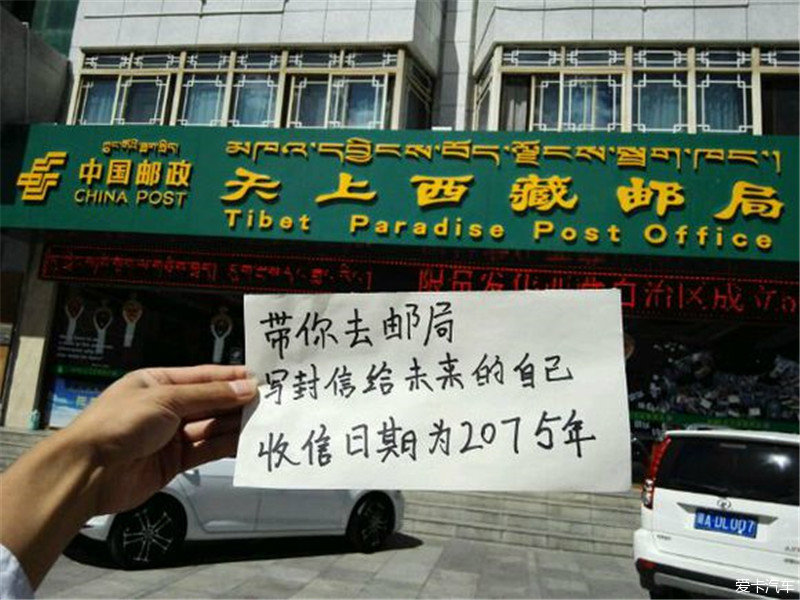 མཁའ་དབྱིངས་བོད་ལྗོངས་སྦྲག་ཁང་།
中国邮政
CHINA POST
天上西藏邮局
Tibet Paradise Post Office
自治区成立
带你去邮局
写封信给未来的自己
收信日期为2075年
爱卡汽车